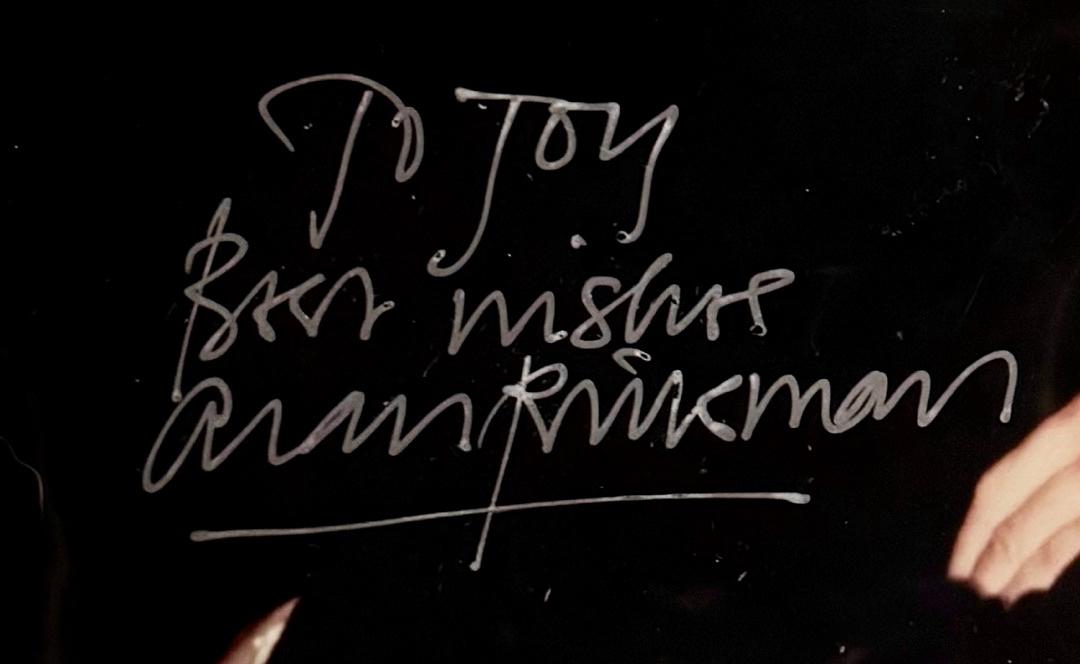 To Joy
Best wishes
Alan Rickman